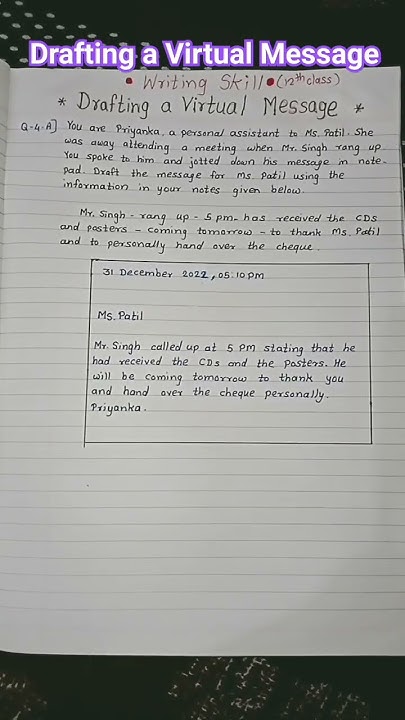 Drafting a Virtual Message
• Writing Skill • (12th class)
* Drafting a Virtual Message *
Q-4-A] You are Priyanka, a personal assistant to Ms. Patil. She
was away attending a meeting when Mr. Singh rang up
You spoke to him and jotted down his message in note-
pad. Draft the message for Ms. Patil using the
information in your notes given below.
Mr. Singh - rang up - 5 pm - has received the CDs
and posters - coming tomorrow - to thank Ms. Patil
and to personally hand over the cheque.
31 December 2022, 05:10 PM
Ms. Patil
Mr. Singh called up at 5 PM stating that he
had received the CDs and the posters. He
will be coming tomorrow to thank you
and hand over the cheque personally.
Priyanka.